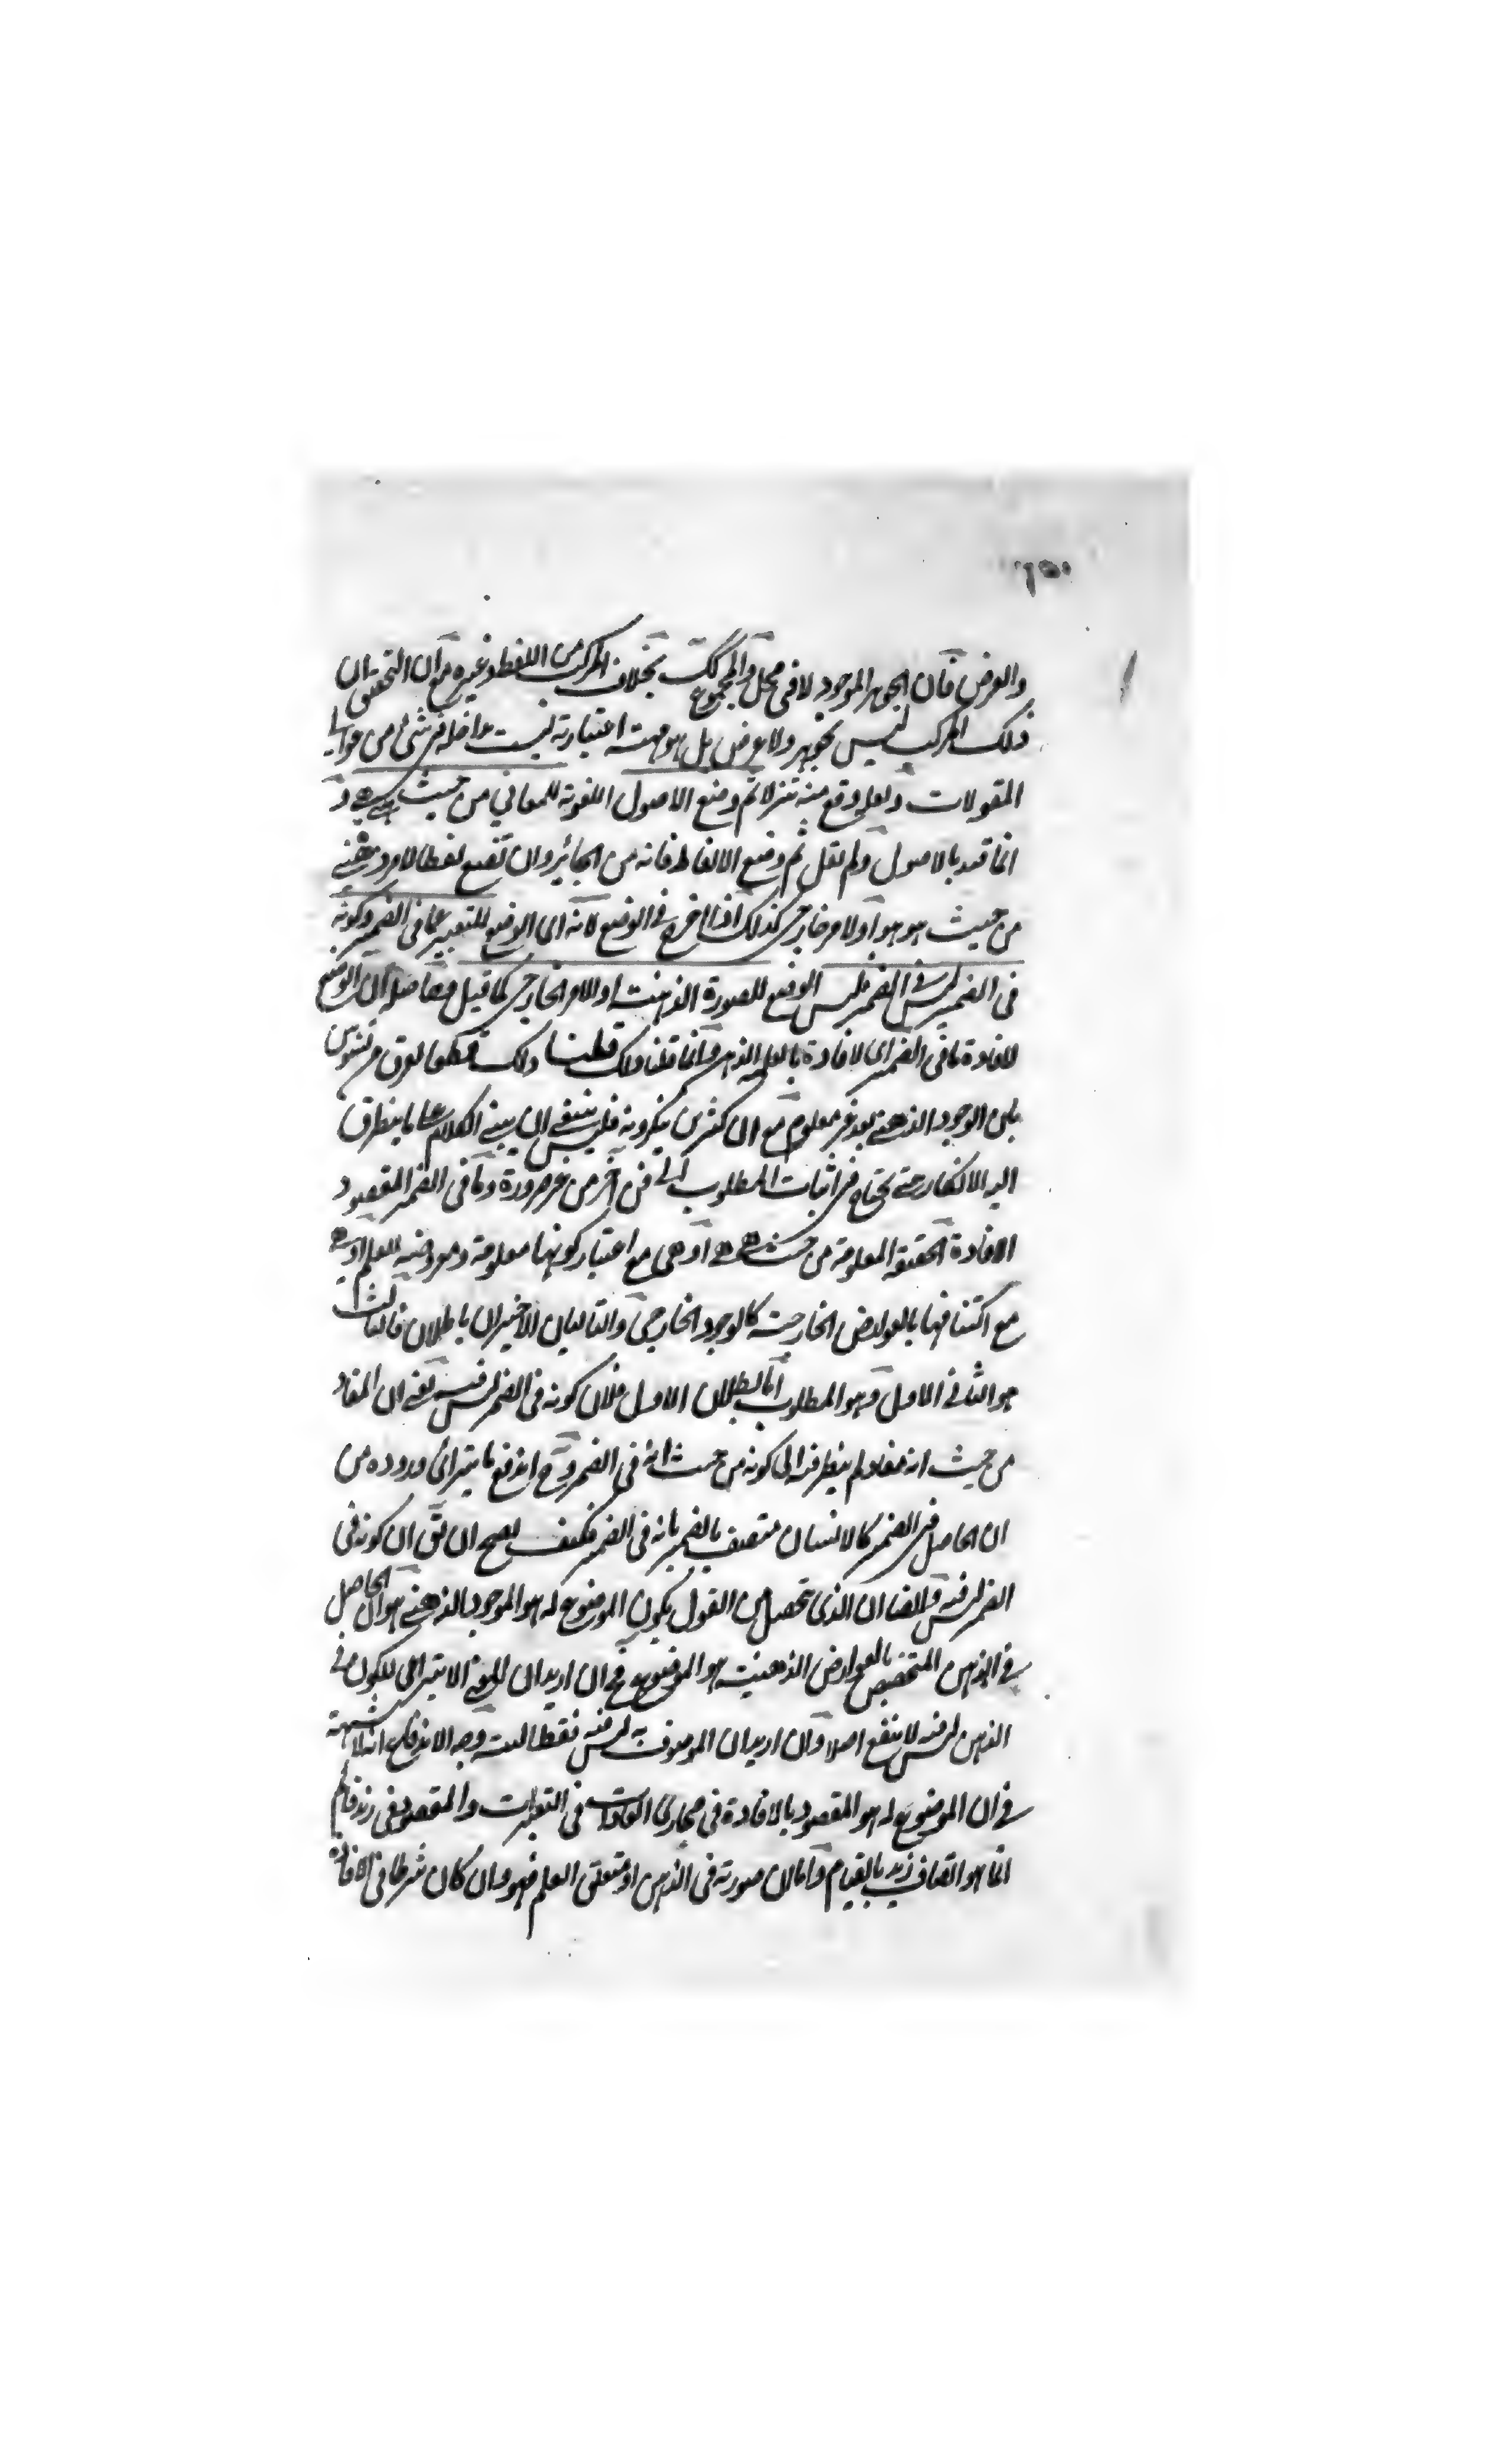 والعرض فان الجوهر الموجود لا فى محل والمجموع كك بخلاف المركب من اللفظ وغيره مع ان التحقيق ان
ذلك المركب ليس بجوهر ولا عرض بل هو مهية اعتبارية ليست داخلة فى شئ من عوالى
المقولات ولعله وقع منه تنزلا ثم وضع الاصول اللغوية للمعانى من حيث هى هى و
انما قيد بالاصول ولم يقل ثم وضع الالفاظ فانه من الجائز ان تضع لفظا لامر ذهنى
من حيث هو هو او لامر خارجى كذلك لانه اى الوضع للتعبير عما فى الضمير وكونه
فى الضمير ليس فى الضمير فليس الوضع للصورة الذهنية او للامر الخارجى كما قيل وحاصله ان الوضع
لافادة ما فى الضمير اى لافادة ما وانما قلنا ذلك
بان الوجود الذهنى بعد غير معلوم مع ان كثيرين ينكرونه فليس ينبغى ان يبنى الكلام على ما يتطرق
اليه الانكار حتى يحتاج فى اثبات المطلوب الى فن آخر من غير ضرورة وما فى الضمير المقصود
الافادة الحقيقة المعلومة من حيث هى هى او هى مع اعتبار كونها معلومة ومعروضية للعلم او هى
مع اكتنافها بالعوارض الخارجية كالوجود الخارجى والتاليان الاخيران باطلان فالثالث
هو المطلوب اما بطلان الاول فلان كونه فى الضمير ليس فيه يعنى ان المفاد
من حيث انه مفاد لم ينظر فيه الى كونه من حيث انه فى الضمير وح اندفع ما يترائى وروده من
ان الحاصل فى الضمير كالانسان متصف بالضمير بانه فى الضمير فكيف يصح ان يق ان كونه فى
الضمير ليس فيه وايضا ان الذى تحصل من القول بكون الموضوع له هو الموجود الذهنى هو ان الحاصل
فى الذهن المتخصص بالعوارض الذهنية هو الموضوع له فح ان اريد ان المعنى الانتزاعى للكون فى
الذهن ليس فيه لا ينفع اصلا وان اريد ان الموصوف به ليس فيه فقط البتة وجه الاندفاع انه لا شبهة
فى ان الموضوع له هو المقصود بالافادة فى مجارى العادات فى التعبيرات والمقصود فى زيد قائم
انما هو اتصاف زيد بالقيام واما ان صورته فى الذهن او متعلق العلم فهو وان كان شرطا فى الافادة